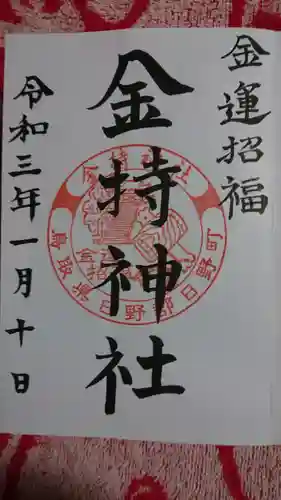 金運招福
金持神社
令和三年一月十日
鳥取県日野郡日野町